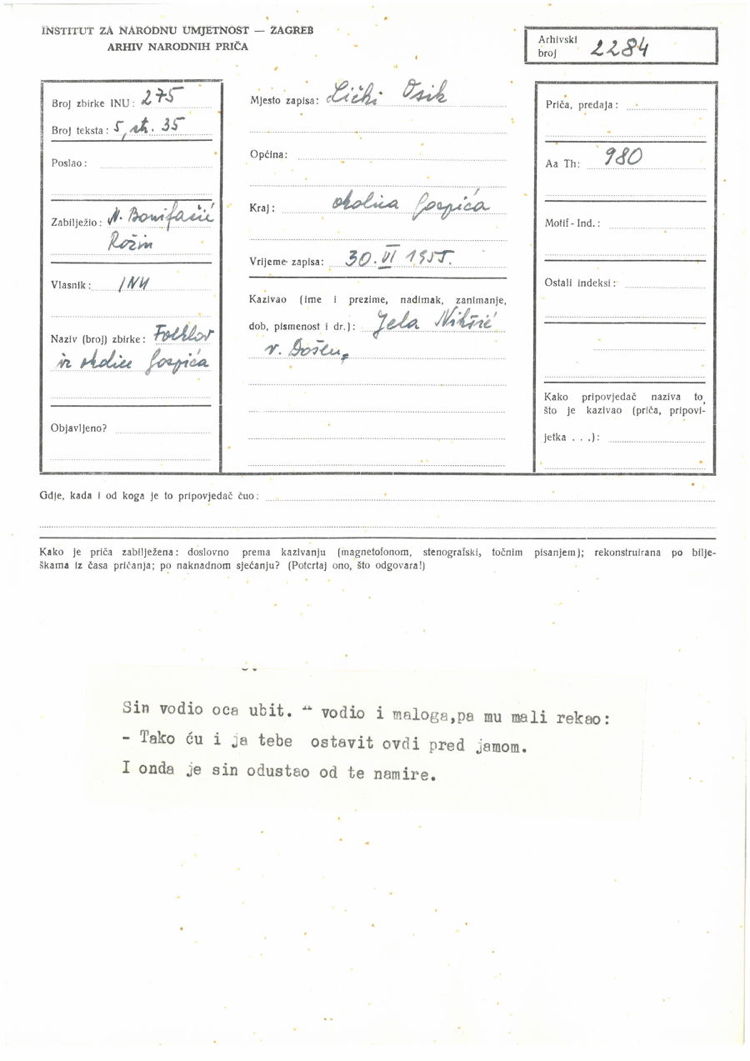 INSTITUT ZA NARODNU UMJETNOST — ZAGREB
ARHIV NARODNIH PRIČA
Arhivski
broj 2284
Broj zbirke INU: 275
Broj teksta: 5, str. 35
Poslao:
Zabilježio: N. Bonifačić
Rožin
Vlasnik: INU
Naziv (broj) zbirke: Folklor
iz okolice Gospića
Objavljeno?
Mjesto zapisa: Lički Osik
Općina:
Kraj: okolica Gospića
Vrijeme zapisa: 30. VI 1955.
Kazivao (ime i prezime, nadimak, zanimanje,
dob, pismenost i dr.): Jela Nikšić
r. Došen,
Priča, predaja:
Aa Th: 980
Motif-Ind.:
Ostali indeksi:
Kako pripovjedač naziva to,
što je kazivao (priča, pripovi-
jetka . . .):
Gdje, kada i od koga je to pripovjedač čuo:
Kako je priča zabilježena: doslovno prema kazivanju (magnetofonom, stenografski, točnim pisanjem); rekonstruirana po bilje-
škama iz časa pričanja; po naknadnom sjećanju? (Potcrtaj ono, što odgovara!)
Sin vodio oca ubit. " vodio i maloga,pa mu mali rekao:
- Tako ću i ja tebe ostavit ovdi pred jamom.
I onda je sin odustao od te namire.